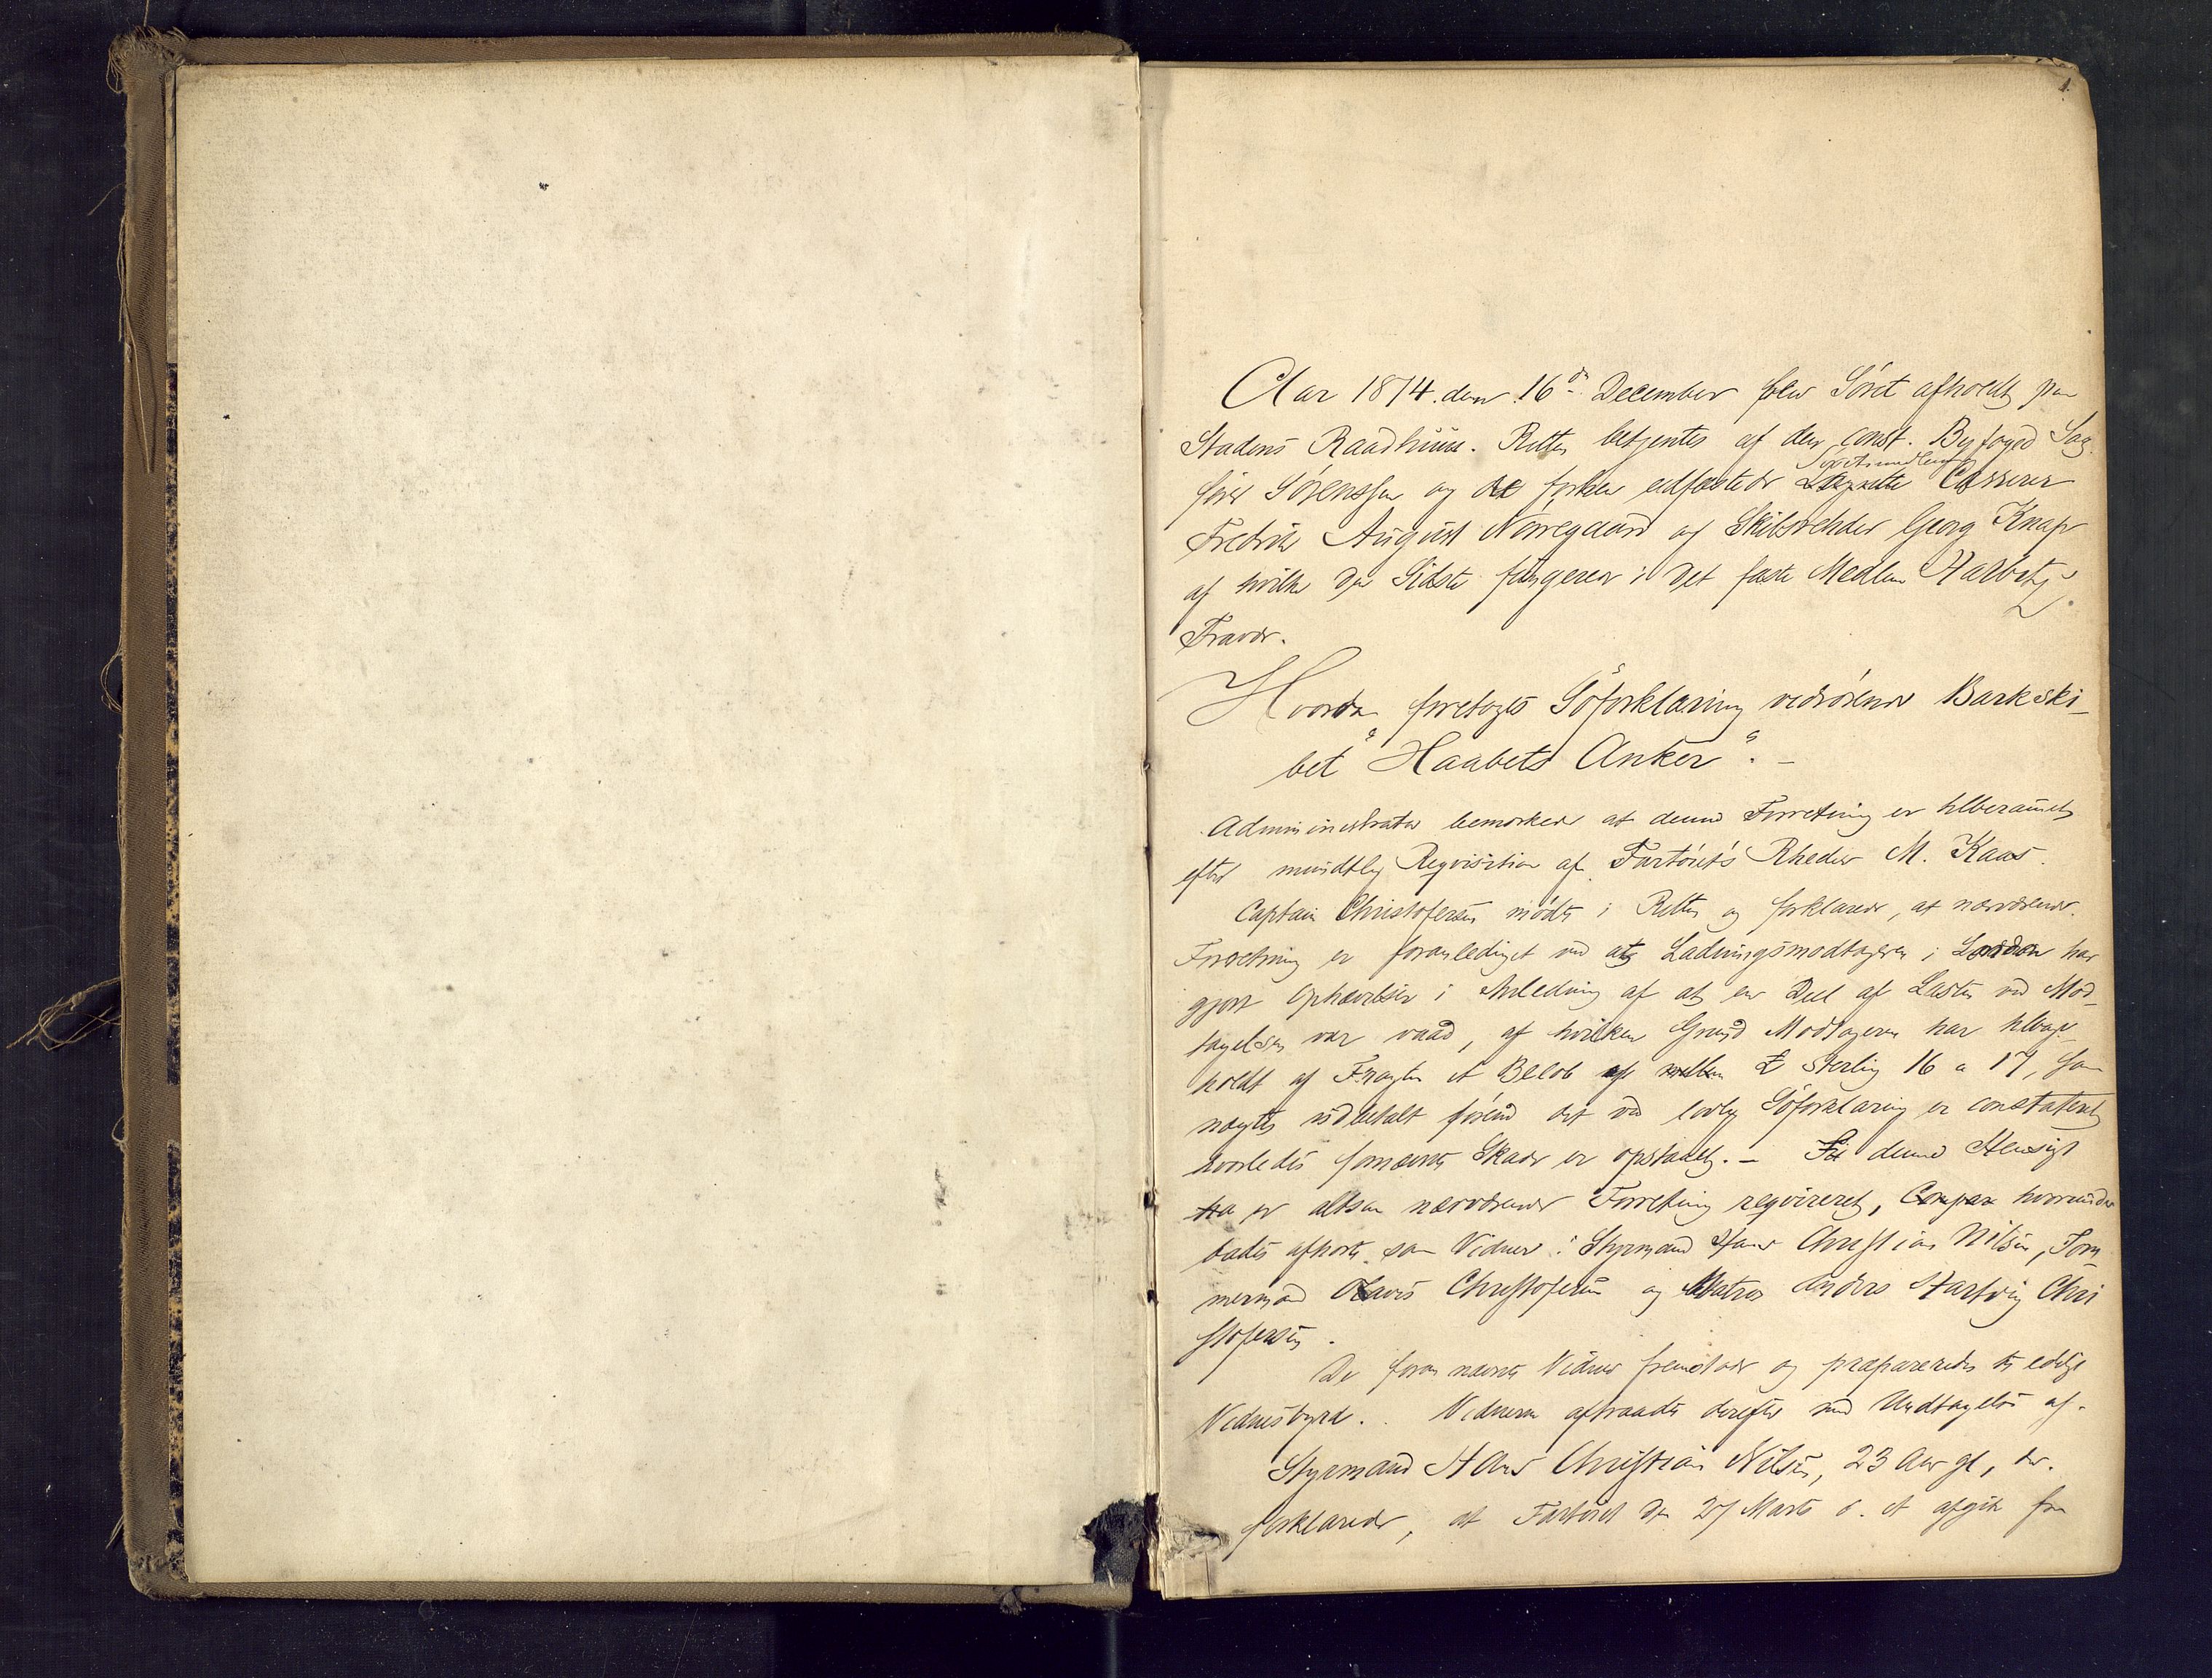 1.
Aar 1874 den 16de December blev Söret afholdt paa
Stadens Raadhuus. Retten betjentes af den const. Byfoged Sag
Söretsmedlemmer
förer Sörenssen og de forhen edfæstede Lagrette Casserer
Fredrik August Nörregaard og Skibsrehder Georg Knap
af hvilke den Sidste fungerer i det faste Medlem Harbitz's
Fravær.
Hvorda foretoges Söforklaring vedrörende Barkski-
bet "Haabets Anker". -
Administrator bemærkede at denne Forretning er tilberammet
efter mundtlig Reqvisition af Fartöiets Rheder M. Kaas.
Captain Christofersen mödte i Retten og forklarede, at nærværende
Forretning er foranlediget ved at Ladningsmodtageren i London har
gjort Ophævelser i Anledning af at en Deel af Lasten ved Mod-
tagelsen var vaad, af hvilken Grund Modtageren har tilbage-
holdt af Fragten et Beløb af mellem £ Sterling 16 a 17, som
nægtes udbetalt förend det ved lovlig Söforklaring er constateret
hvorledes fornævnte Skade er opstaaet. - I denne Hensigt
er altsaa nærværende Forretning reqvireret, hvorunder
bades afhørt som Vidner: Styrmand Hans Christian Nilsen, Töm-
mermand Olaves Christofersen og Matros Anders Hartvig Chri
stofersen.
De foran nævnte Vidner fremstode og præpareredes til edelige
Vidnesbyrd. Vidnerne aftraadte derefter med Undtagelse af
Styrmand Hans Christian Nilsen, 23 Aar gl, der
forklarede, at Fartöiet den 27 Marts d. A afgik fra